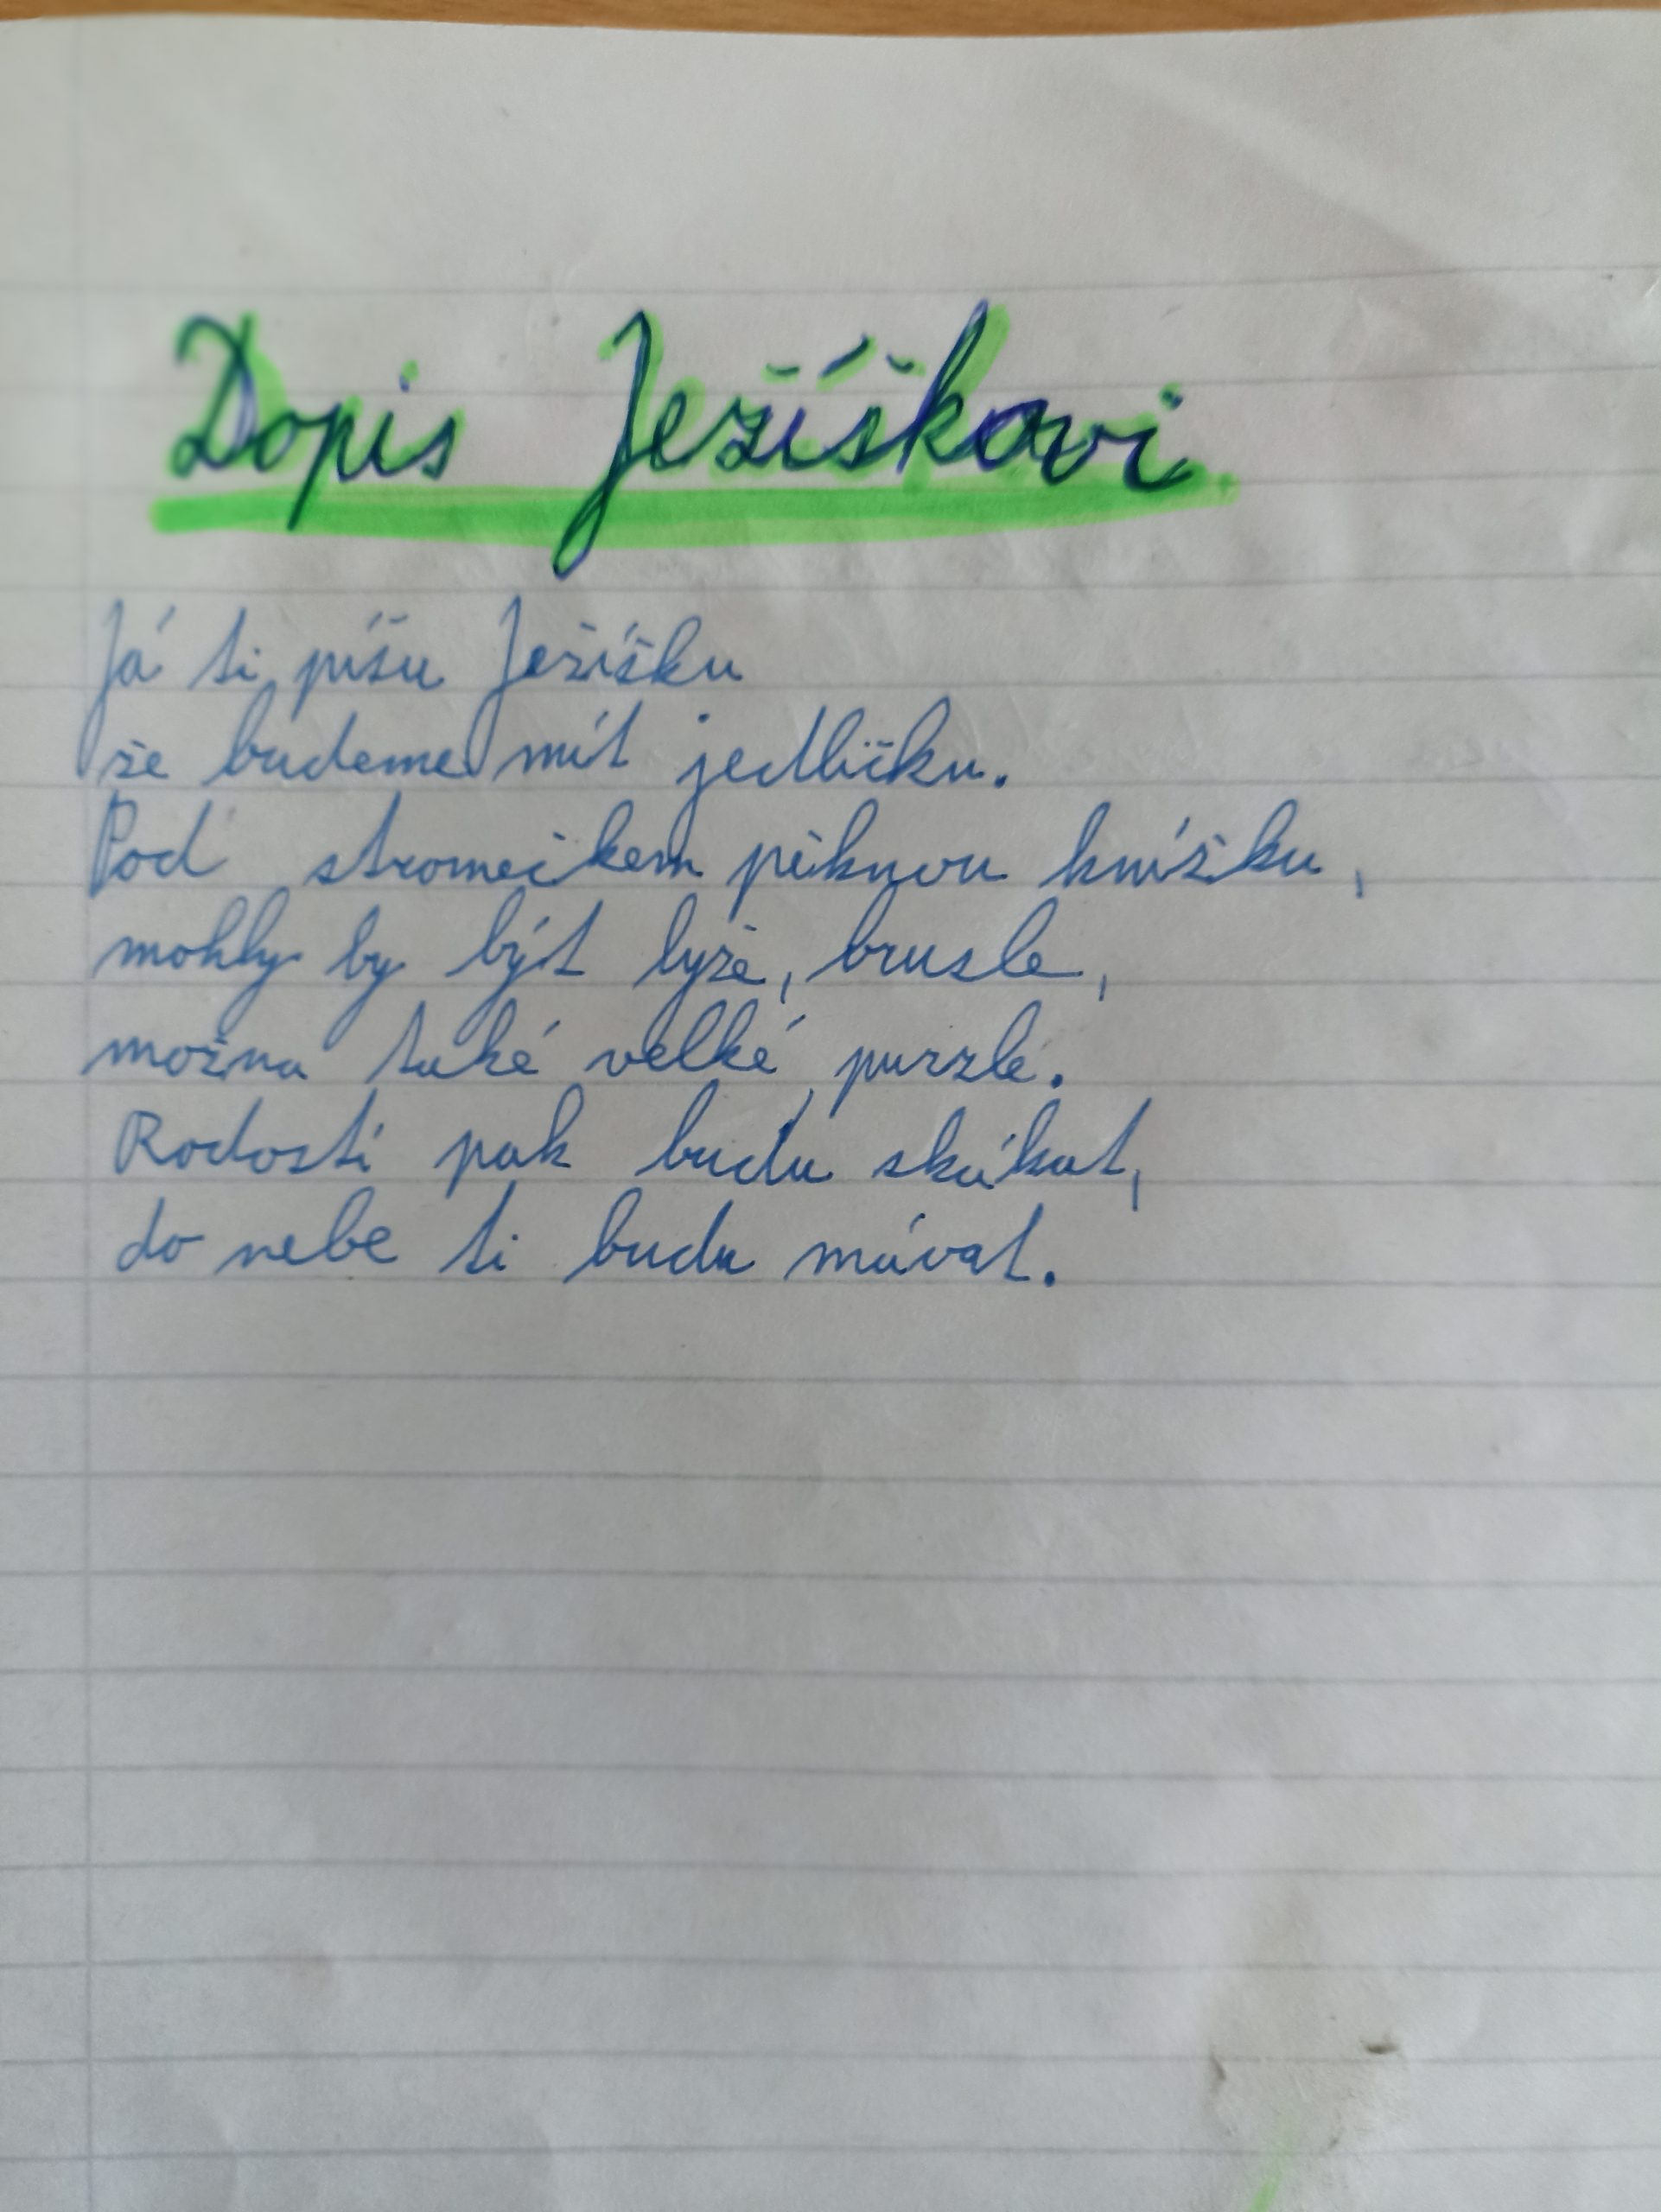 Dopis Ježíškovi
Já ti píšu Ježíšku
že budeme mít jedličku.
Pod stromečkem pěknou knížku,
mohly by být lyže, brusle,
možna také velké puzzle.
Radostí pak budu skákat,
do nebe ti budu mávat.